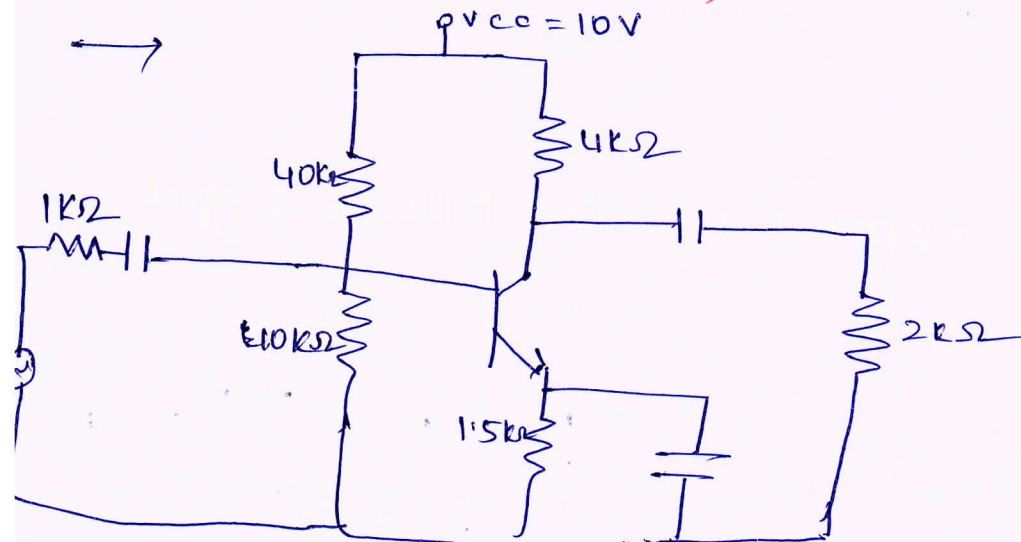 VCC = 10V
4KΩ
40K
1KΩ
10KΩ
2KΩ
1.5K